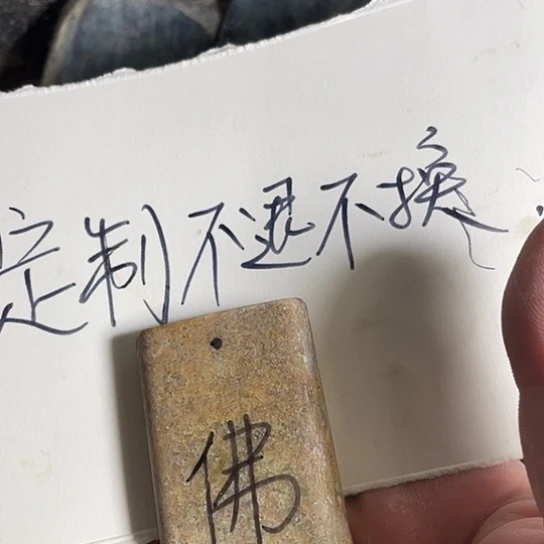 定制不退不换
佛